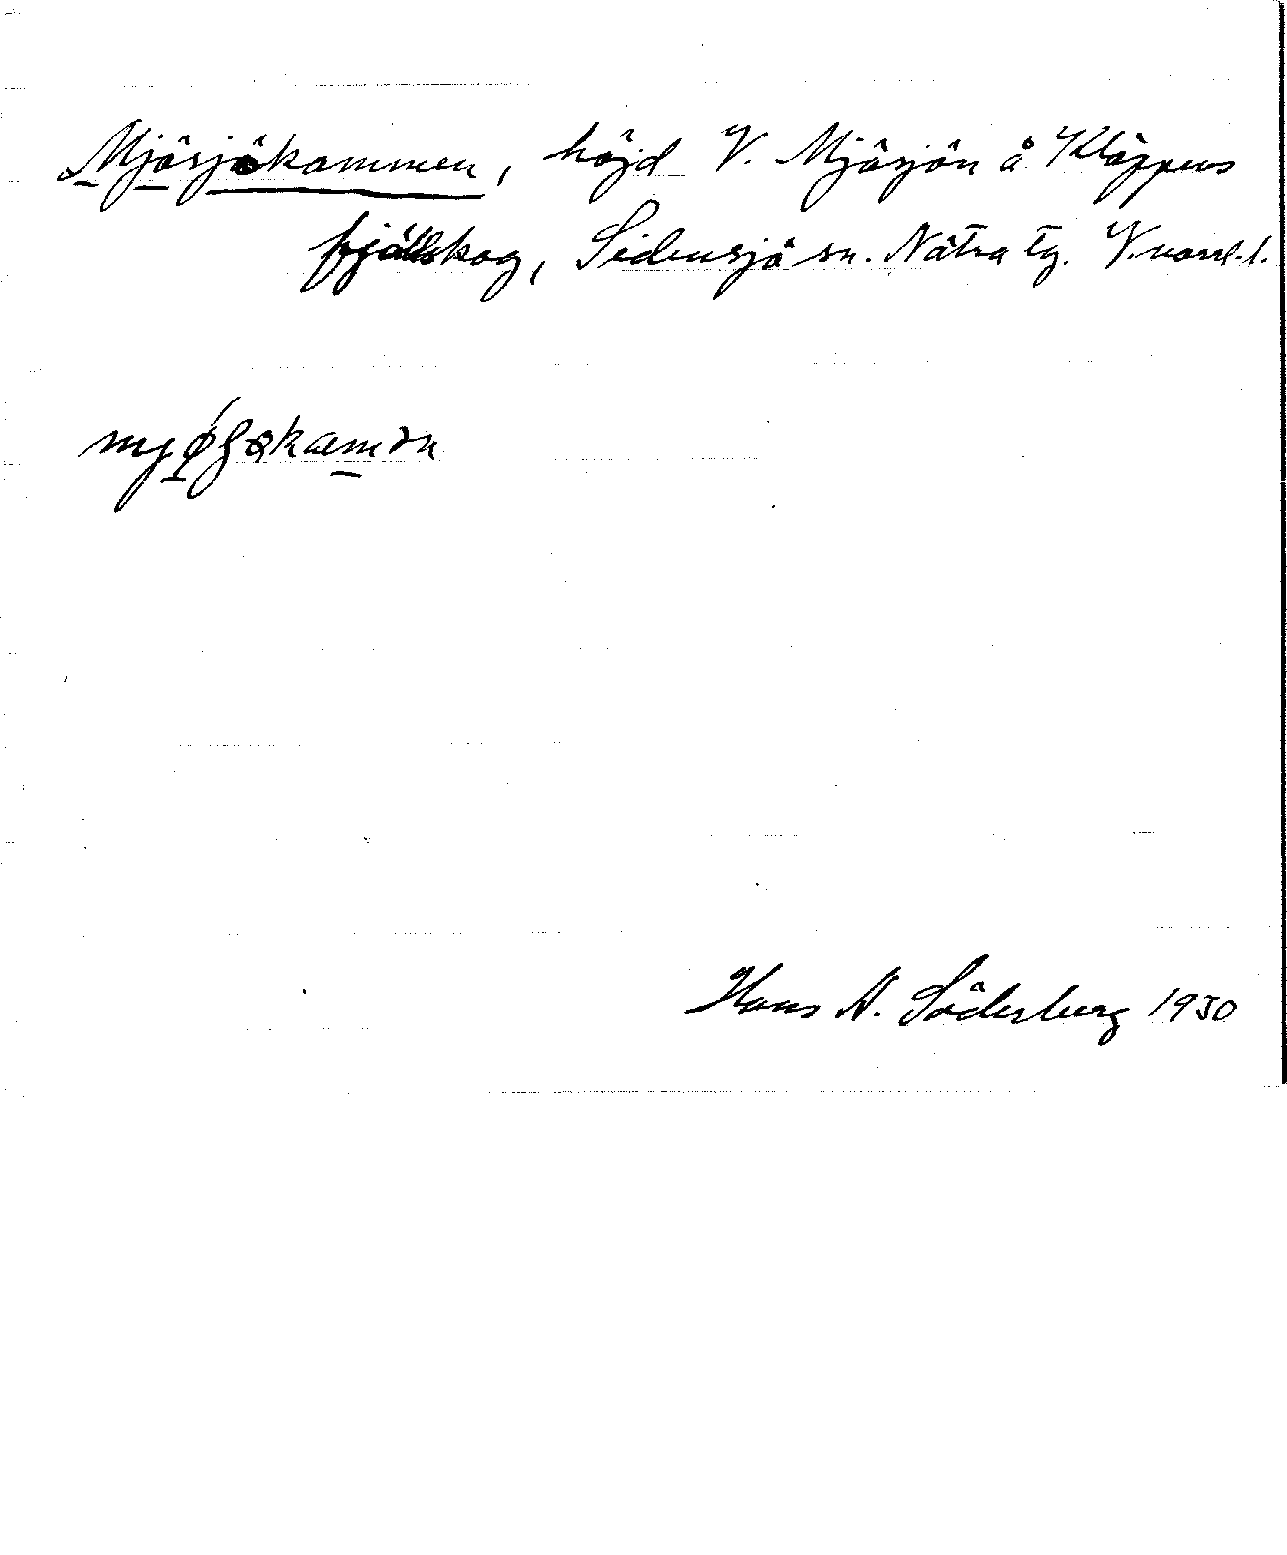 Mjösjökammen, höjd V. Mjösjön å Kläppens
fjällskog, Sidensjö sn. Nätra tg. V.norrl. l.
Hans A. Söderberg 1930